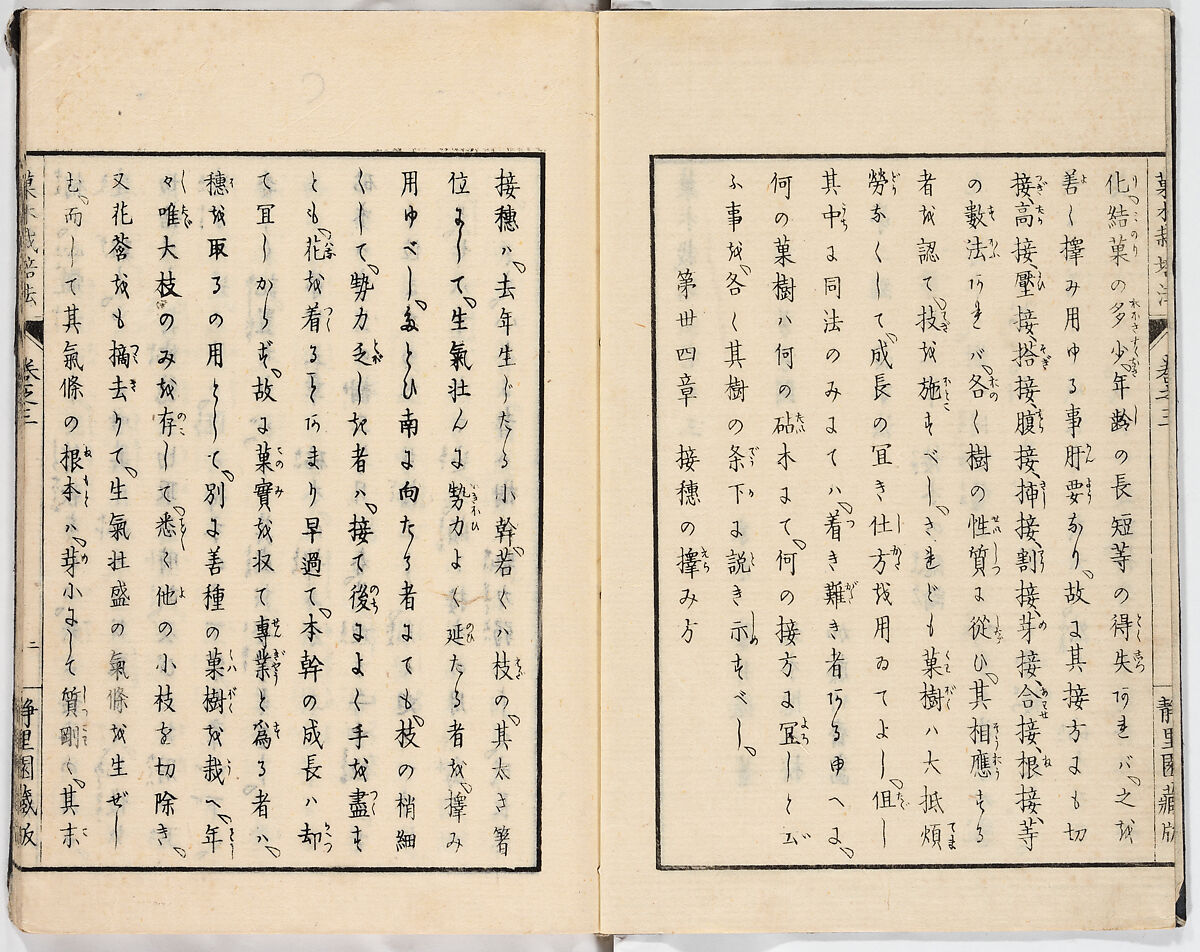 菓木栽培法
卷之三
靜里園藏版
化り、結菓の多少、年齢の長短等の得失アれバ、之を
善く擇み用ゆる事肝要なり、故に其接方にも切
接、高接、壓接、搭接、腹接、揷接、割接、芽接、合接、根接、等
の數法アれバ、各く樹の性質に從ひ、其相應する
者を認て、技を施すべし、されども菓樹ハ大抵煩
勞なくして、成長の冝き仕方を用ゐてよし、但し
其中に同法のみにてハ、着き難き者アるゆへに、
何の菓樹ハ何の砧木にて、何の接方に冝しと云
ふ事を、各く其樹の条下に説き示すべし、
第丗四章　接穗の擇み方
接穗ハ、去年生じたる小幹、若くハ枝の、其太さ箸
位にして、生氣壯んに勢力よく延たる者を、擇み
用ゆべし、たとひ南に向たる者にても、枝の梢細
くして、勢力乏しき者ハ、接て後によく手を盡す
とも、花を着ることアまり早過て、本幹の成長ハ却
て冝しからず、故に菓實を收て專業と爲る者ハ、
穗を取るの用として、別に善種の菓樹を栽へ、年
々唯大枝のみを存して、悉く他の小枝を切除き、
又花莟をも摘去りて、生氣壯盛の氣條を生ぜし
む、而して其氣條の根本ハ、芽小にして質剛く、其末
菓木栽培法
卷之三
二
靜里園藏版